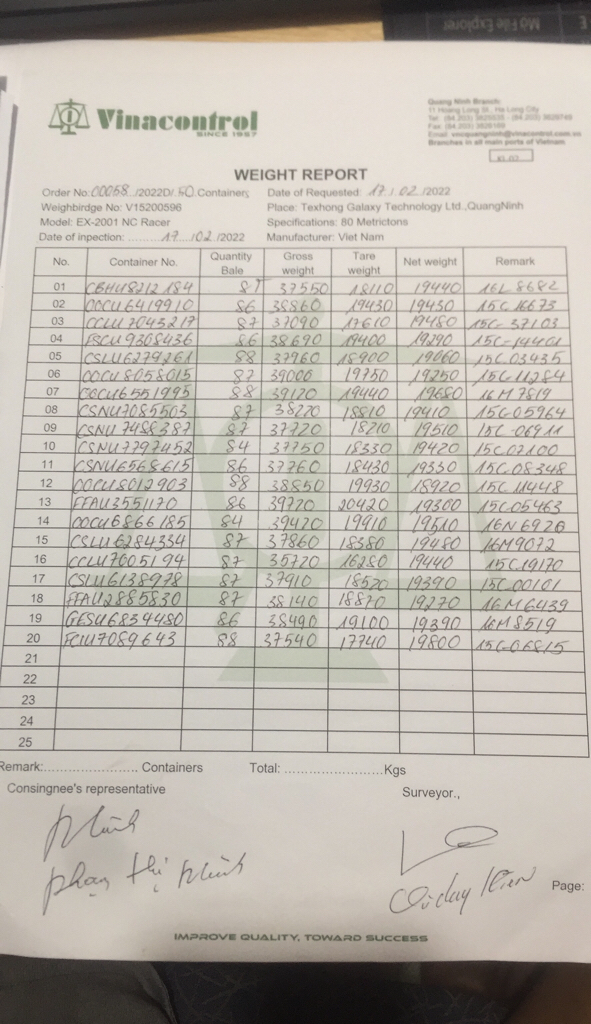 Mo File Explorer
Vinacontrol
SINCE 1957
Quang Ninh Branch:
11 Hoang Long St., Ha Long City
Branches in all main ports of Vietnam
WEIGHT REPORT
Order No: 00068 /2022D/ 50 Containers Date of Requested: 17 / 02 /2022
Weighbirdge No: V15200596 Place: Texhong Galaxy Technology Ltd.,QuangNinh
Model: EX-2001 NC Racer Specifications: 80 Metrictons
Date of inpection: 17 /02 /2022 Manufacturer: Viet Nam
No. Container No. Quantity Bale Gross weight Tare weight Net weight Remark
01 CBHU8212184 87 37550 18110 19440 16L 8682
02 OOCU6419910 86 38860 19430 19430 15C 16673
03 CCLU7043217 87 37090 17610 19480 15C-37103
04 FSCU9308436 86 38690 19400 19290 15C-14401
05 CSLU6279261 88 37960 18900 19060 15C.03435
06 OOCU8058015 87 39000 19750 19250 15C 11284
07 OOCU6551995 88 39120 19440 19680 16M 7819
08 CSNU7085503 87 38220 18810 19410 15C-05964
09 CSNU7488387 87 37720 18210 19510 15C-06911
10 CSNU7797452 84 37750 18330 19420 15C07100
11 CSNU6568615 86 37760 18430 19330 15C.08348
12 OOCU8012903 88 38850 19930 18920 15C.11448
13 FFAU3551170 86 39720 20420 19300 15C05463
14 OOCU6866185 84 39420 19910 19510 16N 6926
15 CSLU6284334 87 37860 18380 19480 16M9072
16 CCLU7005194 87 35720 16280 19440 15C19170
17 CSLU6138978 87 37910 18520 19390 15C 00101
18 FFAU2885830 87 38140 18870 19270 16M6439
19 GESU6834480 86 38490 19100 19390 16M8519
20 FCIU7089643 88 37540 17740 19800 15C-06815
21
22
23
24
25
Remark: Containers Total: Kgs
Consingnee's representative Surveyor.,
phan thị
Page:
IMPROVE QUALITY, TOWARD SUCCESS